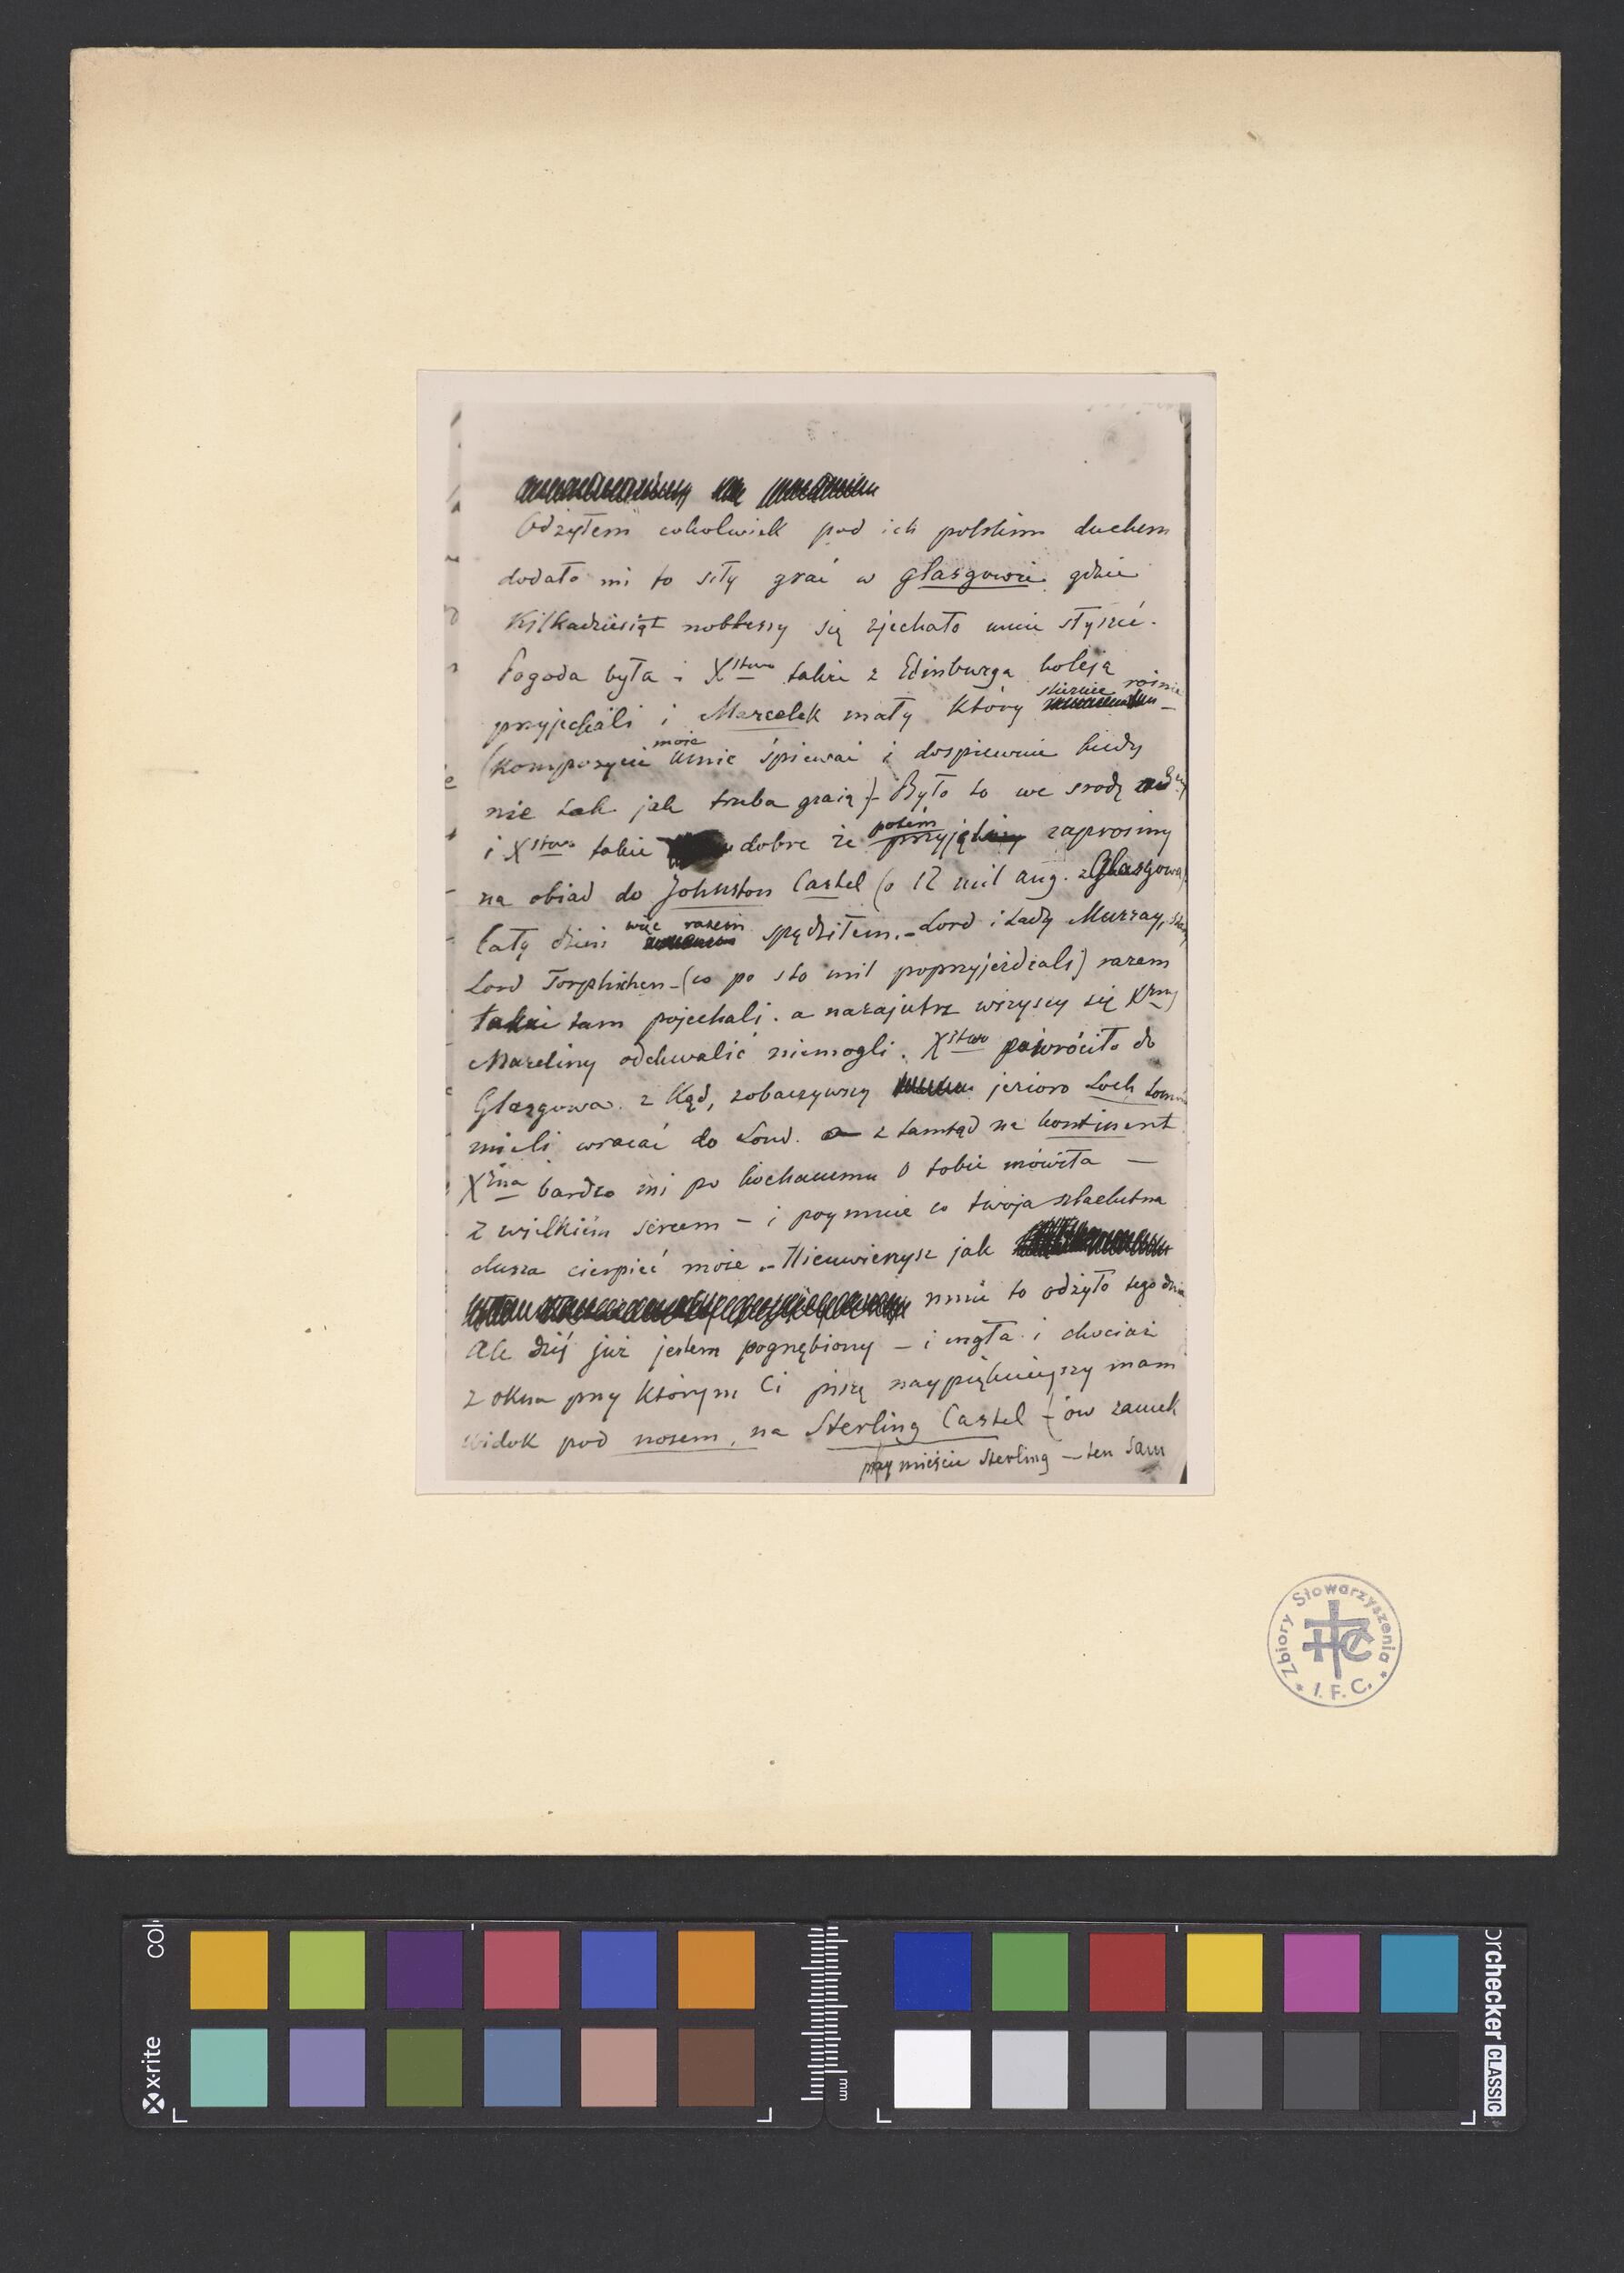 Odżyłem cokolwiek pod ich polskim duchem
dodało mi to siły grać w Glasgowie gdzie
Kilkadziesiąt noblessy się zjechało mnie słyszeć.
Pogoda była i Xstwo także z Edinburga koleją
przyjechali i Marcelek mały który ślicznie rośnie
(Kompozycie moje umie śpiewać i dospiewuie kiedy
nie tak jak trzeba grają) – Było to we srodę
i Xstwo takie dobre że potem zaprosiny
na obiad do Johnston Castel (o 12 mil ang. z Glasgowa)
Cały dzień więc razem spędziłem. – Lord i Lady Murray,
Lord Torphichen – (co po sto mil poprzyjeżdżali) razem
także tam pojechali. a nazajutrz wszyscy się Xżny
Marceliny odchwalić niemogli. Xstwo powróciło do
Glasgowa. z Kąd, zobaczywszy jezioro Loch Lomond
mieli wracać do Lond. z tamtąd na kontinent
Xżna bardzo mi po kochanemu o tobie mówiła –
z wielkiém sercem – i poymuie co twoja szlachetna
dusza cierpieć może. – Nieuwierzysz jak
mnie to odżyło tego dnia
Ale dziś już jestem pognębiony – i mgła. i chociaż
z okna przy którym Ci piszę naypięknieyszy mam
widok pod nosem, na Sterling Castel – (ów zamek
przy mieście Sterling – ten sam
Zbiory Stowarzyszenia * I. F. C. *
colorchecker CLASSIC
x-rite
mm